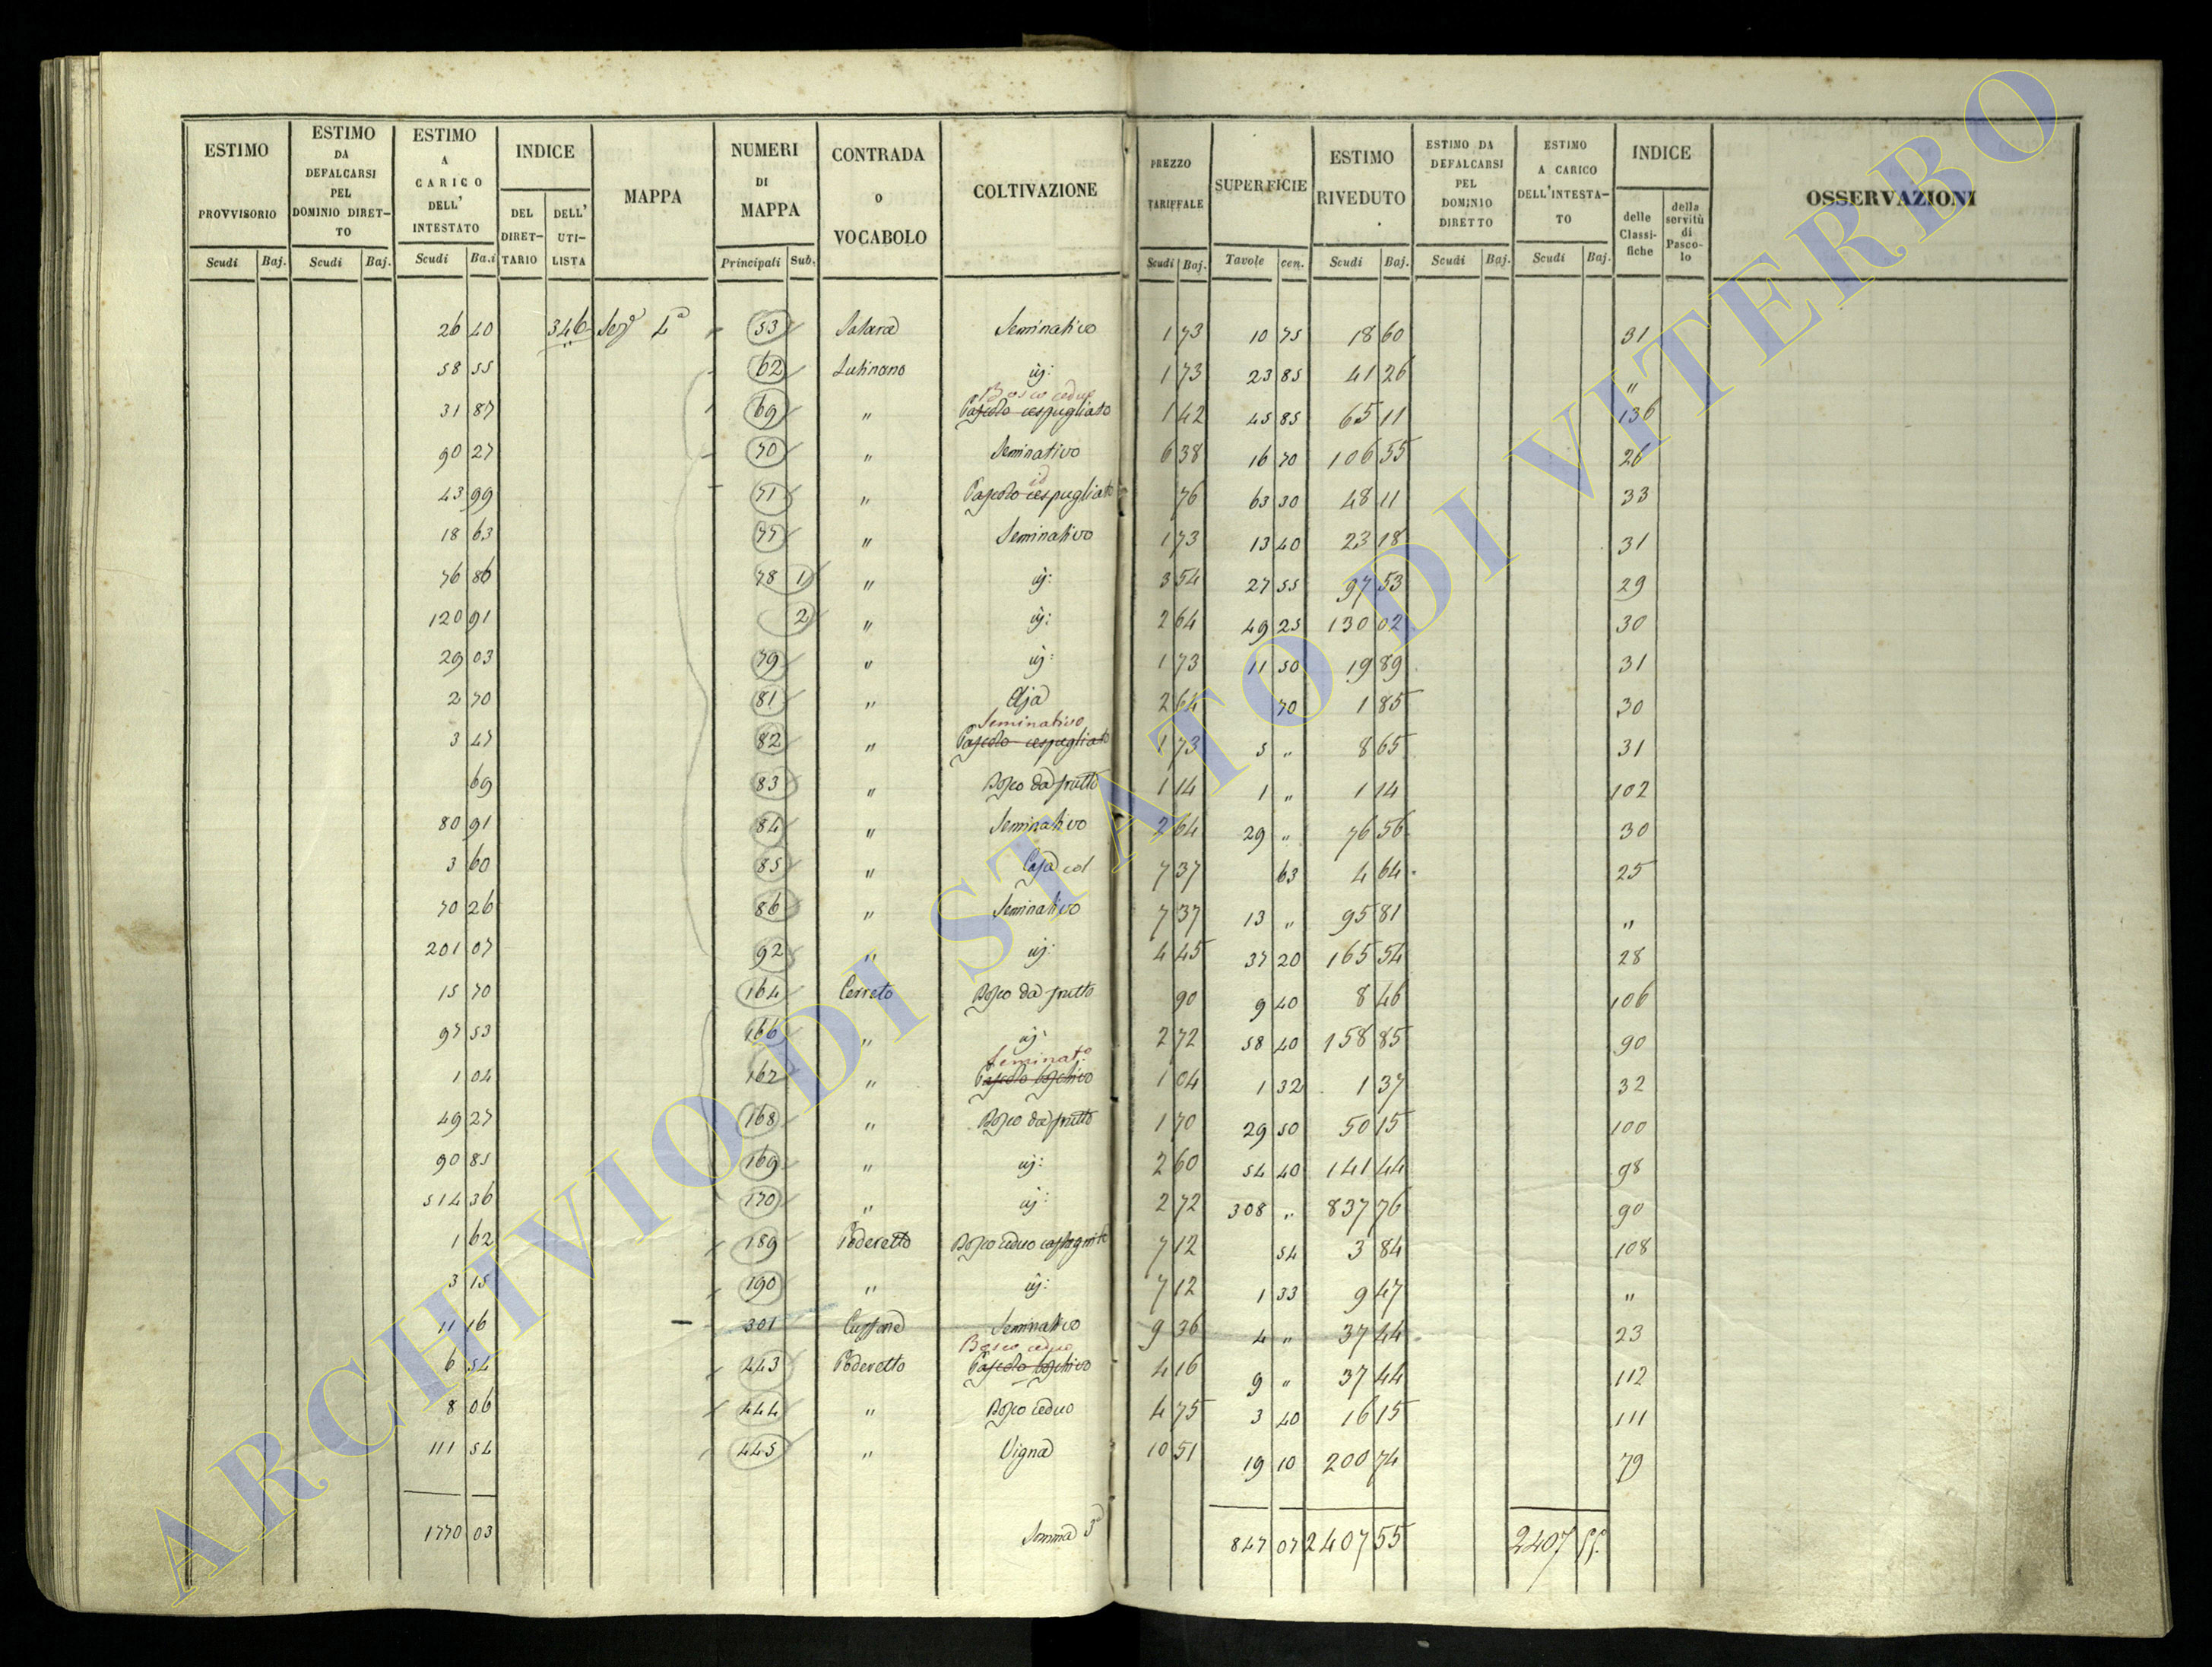 ESTIMO PROVVISORIO | ESTIMO DA DEFALCARSI PEL DOMINIO DIRET-TO | ESTIMO A CARICO DELL' INTESTATO | INDICE | MAPPA | NUMERI DI MAPPA | CONTRADA O VOCABOLO | COLTIVAZIONE | PREZZO TARIFFALE | SUPERFICIE | ESTIMO RIVEDUTO | ESTIMO DA DEFALCARSI PEL DOMINIO DIRETTO | ESTIMO A CARICO DELL'INTESTA-TO | INDICE | OSSERVAZIONI
DEL DIRET-TARIO | DELL' UTI-LISTA | delle Classi-fiche | della servitù di Pasco-lo
Scudi | Baj. | Scudi | Baj. | Scudi | Ba.i | Principali | Sub. | Scudi | Baj. | Tavole | cen. | Scudi | Baj. | Scudi | Baj. | Scudi | Baj.
26 40 | 346 | 4ª | 53 | Seminativo | 1 73 | 10 75 | 18 60 | 31
58 55 | 62 | id: | 1 73 | 23 85 | 41 26 | "
31 87 | 69 | " | Bosco ceduo Pascolo cespugliato | 1 42 | 45 85 | 65 11 | 136
90 27 | 70 | " | Seminativo | 6 38 | 16 70 | 106 55 | 26
43 99 | 71 | " | id Pascolo cespugliato | 76 | 63 30 | 48 11 | 33
18 63 | 77 | " | Seminativo | 1 73 | 13 40 | 23 18 | 31
76 86 | 78 1 | " | id: | 3 54 | 27 55 | 97 53 | 29
120 91 | 2 | " | id: | 2 64 | 49 25 | 130 02 | 30
29 03 | 79 | " | id: | 1 73 | 11 50 | 19 89 | 31
2 70 | 81 | " | Aja | 2 64 | 70 | 1 85 | 30
3 47 | 82 | " | Seminativo Pascolo cespugliato | 1 73 | 5 " | 8 65 | 31
69 | 83 | " | Bosco da frutto | 1 14 | 1 " | 1 14 | 102
80 91 | 84 | " | Seminativo | 2 64 | 29 " | 76 56 | 30
3 60 | 85 | " | Casa col | 7 37 | 63 | 4 64 | 25
70 26 | 86 | " | Seminativo | 7 37 | 13 " | 95 81 | "
201 07 | 92 | " | id: | 4 45 | 37 20 | 165 54 | 28
15 70 | 164 | Cerreto | Bosco da frutto | 90 | 9 40 | 8 46 | 106
97 53 | 166 | " | id | 2 72 | 58 40 | 158 85 | 90
1 04 | 167 | " | Seminato Pascolo boschivo | 1 04 | 1 32 | 1 37 | 32
49 27 | 168 | " | Bosco da frutto | 1 70 | 29 50 | 50 15 | 100
90 85 | 169 | " | id: | 2 60 | 54 40 | 141 44 | 98
514 36 | 170 | " | id: | 2 72 | 308 " | 837 76 | 90
1 62 | 189 | Poderetto | Bosco ceduo | 7 12 | 54 | 3 84 | 108
3 15 | 190 | " | id: | 7 12 | 1 33 | 9 47 | "
11 16 | 301 | Seminativo | 9 36 | 4 " | 37 44 | 23
6 54 | 443 | Poderetto | Bosco ceduo Pascolo boschivo | 4 16 | 9 " | 37 44 | 112
8 06 | 444 | " | Bosco ceduo | 4 75 | 3 40 | 16 15 | 111
111 54 | 445 | " | Vigna | 10 51 | 19 10 | 200 74 | 79
1770 03 | Somma 3ª | 847 07 | 2407 55 | 2407 55
ARCHIVIO DI STATO DI VITERBO